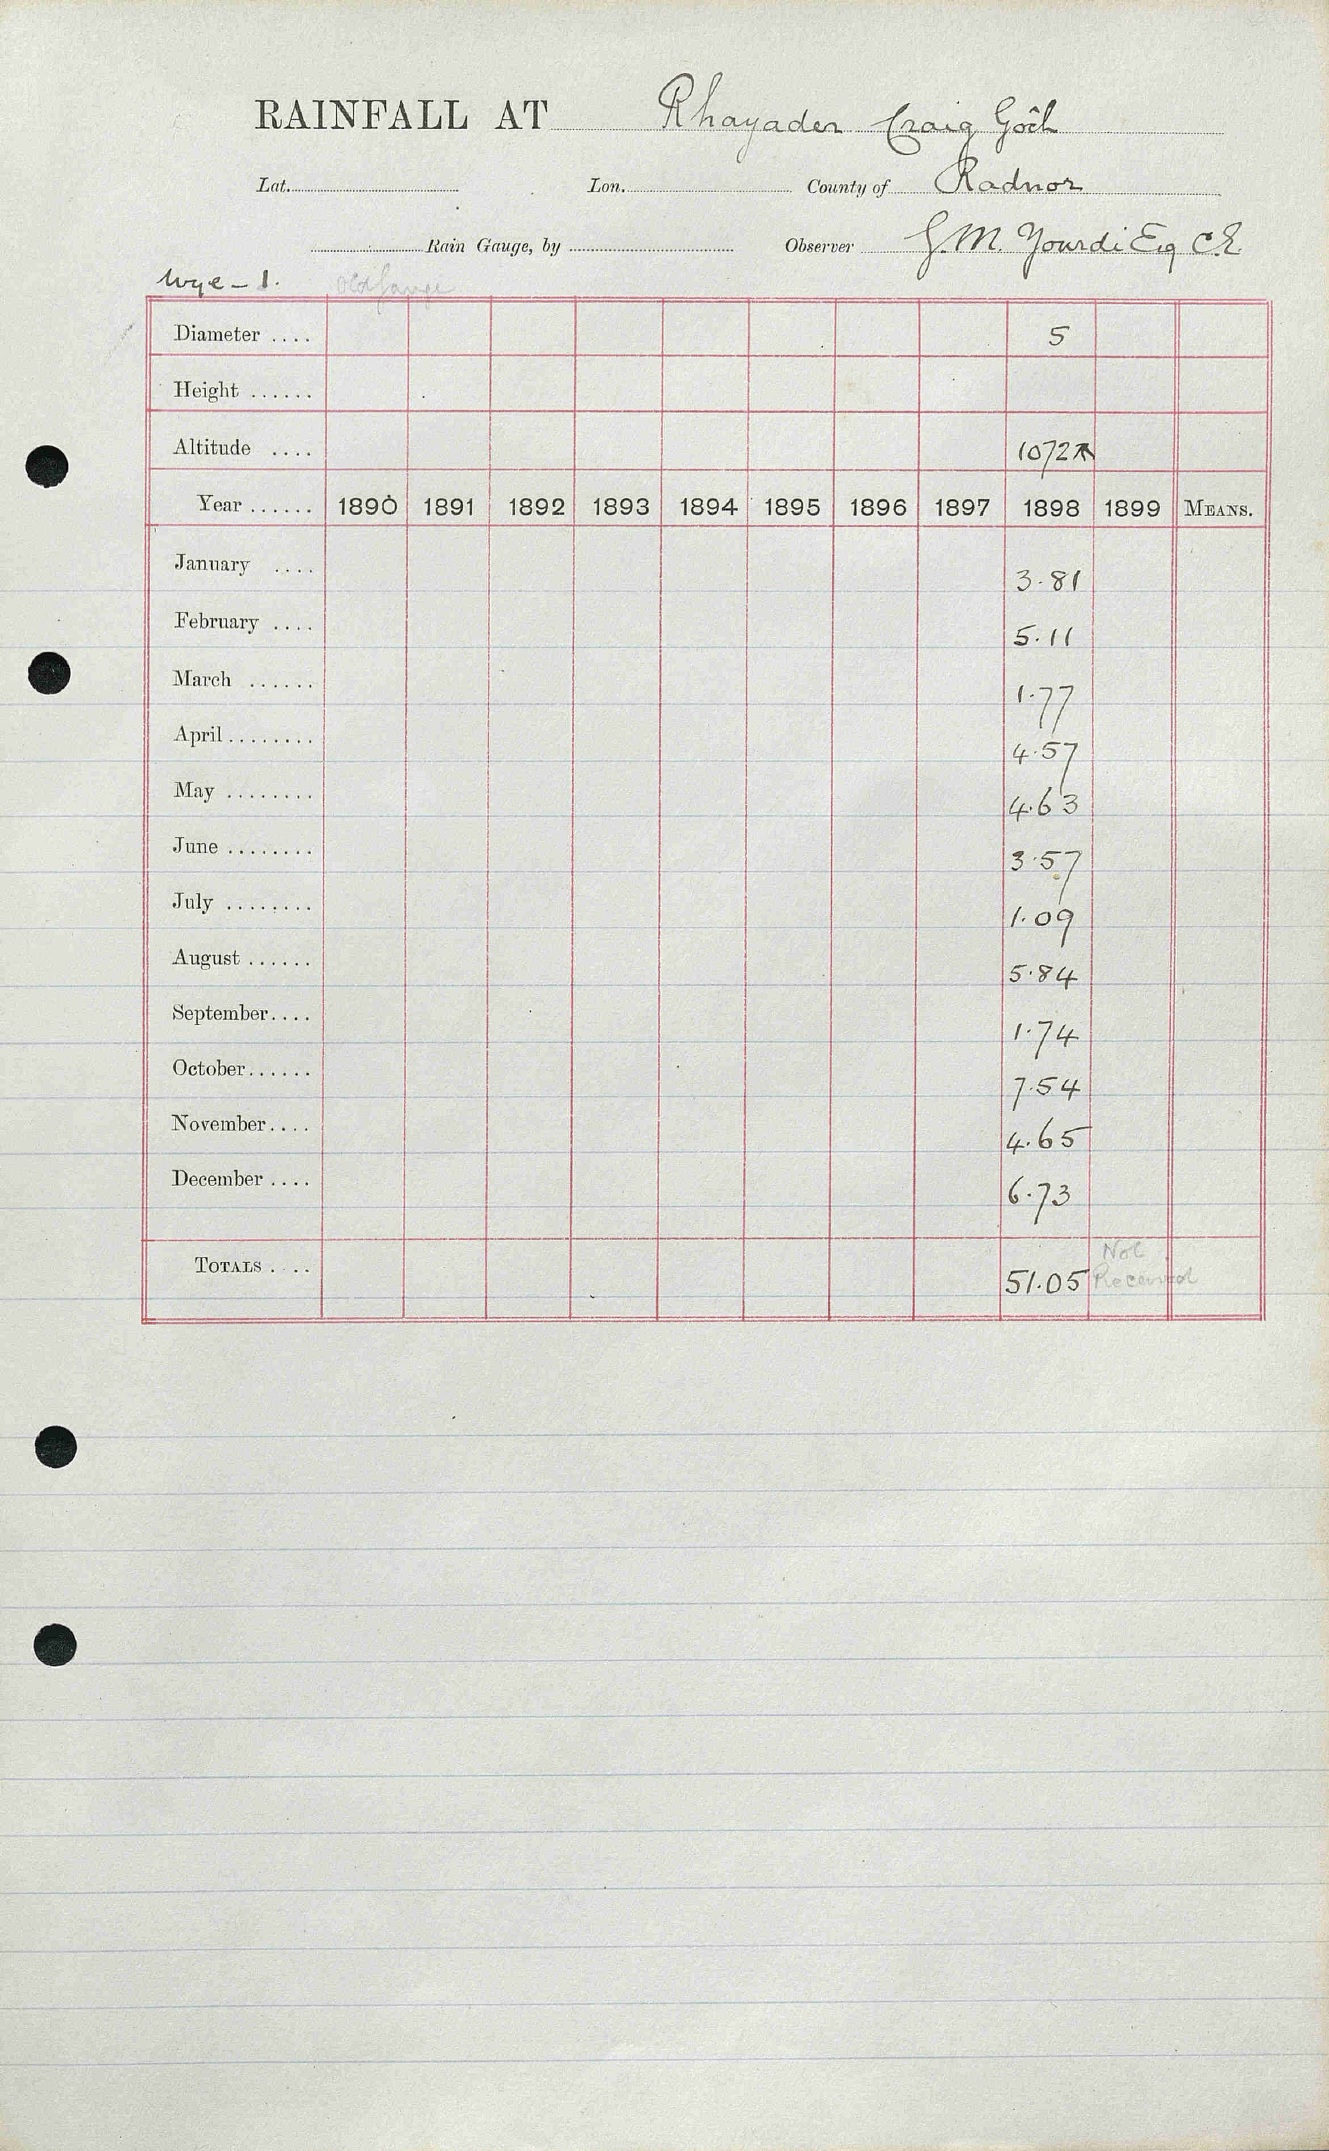 RAINFALL AT Rhayader Craig Gôch
Lat. Lon. County of Radnor
Rain Gauge, by Observer G.M. Yourdi Esq C.E.
Wye – 1. Old Gauge
Diameter .... 5
Height ......
Altitude .... 1072
Year ...... 1890 1891 1892 1893 1894 1895 1896 1897 1898 1899 MEANS.
January .... 3.81
February .... 5.11
March ...... 1.77
April ........ 4.57
May ........ 4.63
June ........ 3.57
July ........ 1.09
August ...... 5.84
September.... 1.74
October...... 7.54
November.... 4.65
December .... 6.73
TOTALS .... 51.05 Not Received